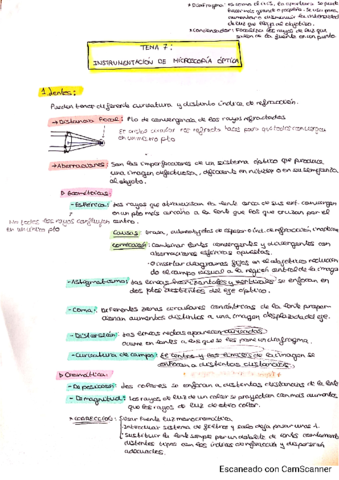 * Diafragma: es como el iris, su apertura se puede
hacer más grande o pequeña. Se usa para
aumentar o disminuir la intensidad
de luz que llega al objetivo.
* Condensador: Focaliza los rayos de luz que
salen de la fuente en un punto
TEMA 7:
INSTRUMENTACIÓN DE MICROSCOPÍA ÓPTICA
1. Lentes:
Pueden tener diferente curvatura y distinto índice de refracción.
→ Distancia focal: Pto de convergencia de los rayos refractados
El ángulo
en un mismo pto
→ Aberraciones: Son las imperfecciones de un sistema óptico que produce
una imagen defectuosa, difiriendo en nitidez o en su semejanza
al objeto.
Geométricas:
- Esférica: Los rayos que atraviesan la lente cerca de sus ext. convergen
en un pto más cercano a la lente que los que cruzan por el
centro.
No todos los rayos confluyen
en un mismo pto
Causas:
Corrección: Combinar lentes convergentes y divergentes con
aberraciones esféricas opuestas.
o insertar diagramas fijos en el objetivo
do el campo visual a la región central de la imagen
- Astigmatismo: Las líneas horizontales y verticales se enfocan en
dos planos distintos del eje óptico.
- Coma: Diferentes zonas circulares concéntricas de la lente propor-
cionan aumentos distintos a una imagen desplazada del eje.
- Distorsión: Las líneas rectas aparecen curvadas
ocurre en lentes a las que se les pone un diafragma.
- Curvatura de campo: El centro y los límites de la imagen se
enfocan a distintas distancias.
Cromática:
- De posición: Los colores se enfocan a distintas distancias de la lente
- De magnitud: Los rayos de luz de un color se proyectan con más aumentos
que los rayos de luz de otro color.
* CORRECCIÓN: Usar fuente luz monocromática.
Introducir sistema de filtros y solo deja pasar unas λ.
Sustituir la lente simple por un doblete de lentes
tipos con los índices de refracción y dispersión
adecuados.
Escaneado con CamScanner